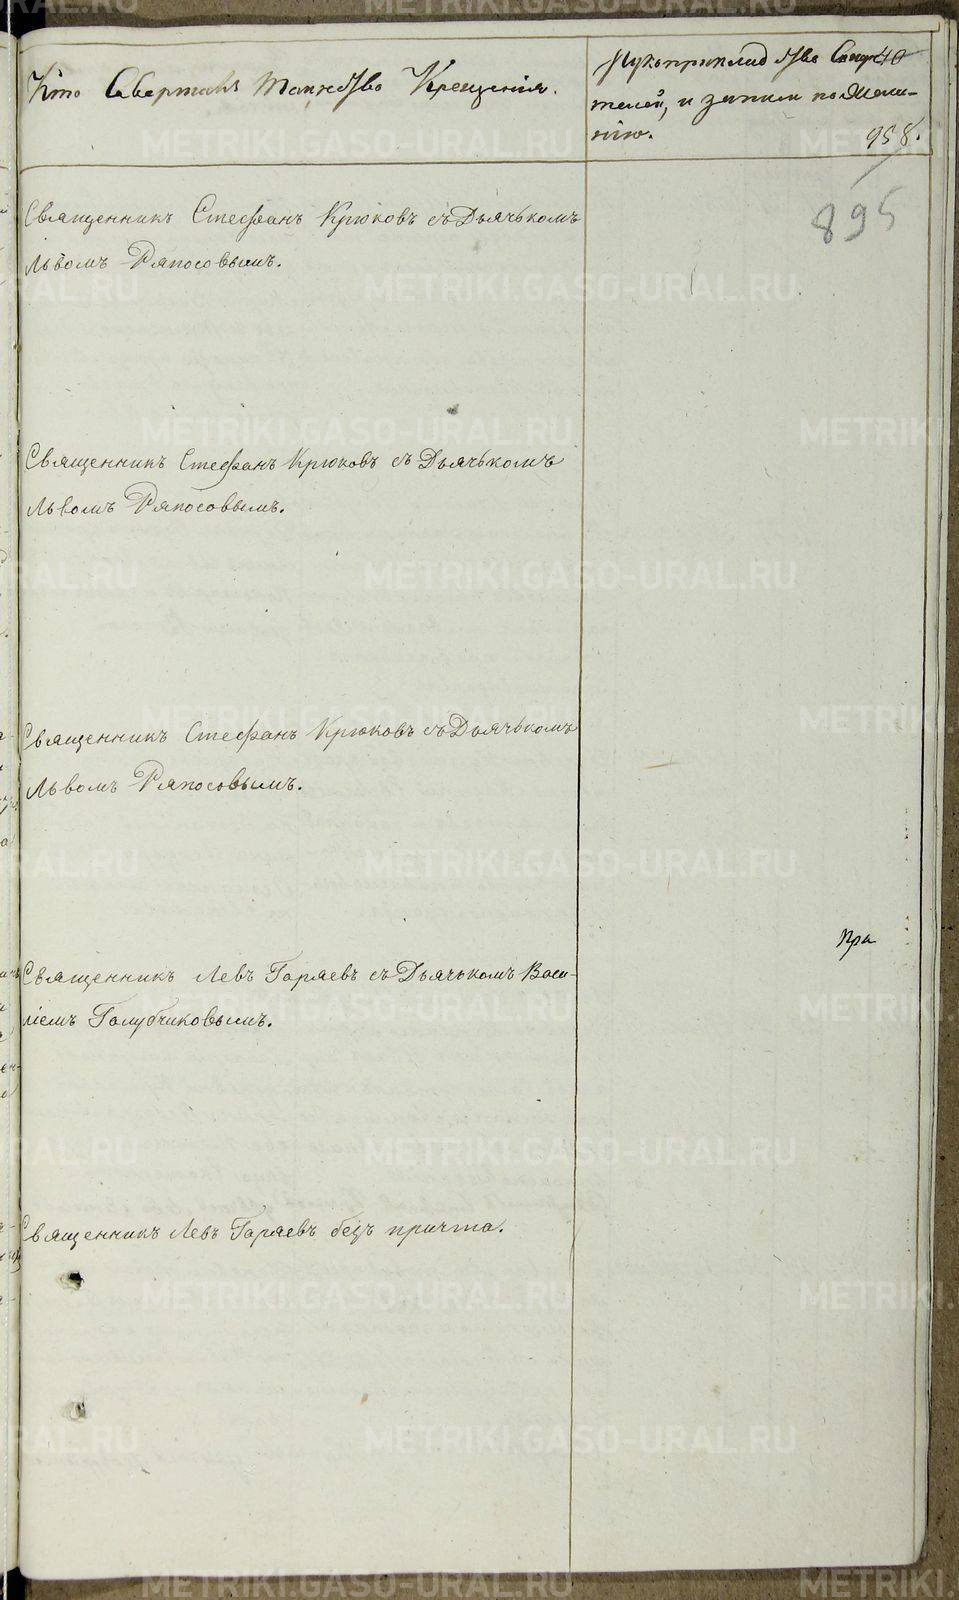 Кто Совершалъ Таинство Крещенія.
Рукоприкладство Свидѣ-
телей, и записи по Жела-
нію.
40
958.
895
Священникъ Стефанъ Крюковъ съ Дьячькомъ
Львомъ Ряпосовымъ.
Священникъ Стефанъ Крюковъ съ Дьячькомъ
Львомъ Ряпосовымъ.
Священникъ Стефанъ Крюковъ съ Дьячькомъ
Львомъ Ряпосовымъ.
При
Священникъ Левъ Гаряевъ съ Дьячькомъ Васи-
ліемъ Голубчиковымъ.
Священникъ Левъ Гаряевъ безъ причта.
METRIKI.GASO-URAL.RU